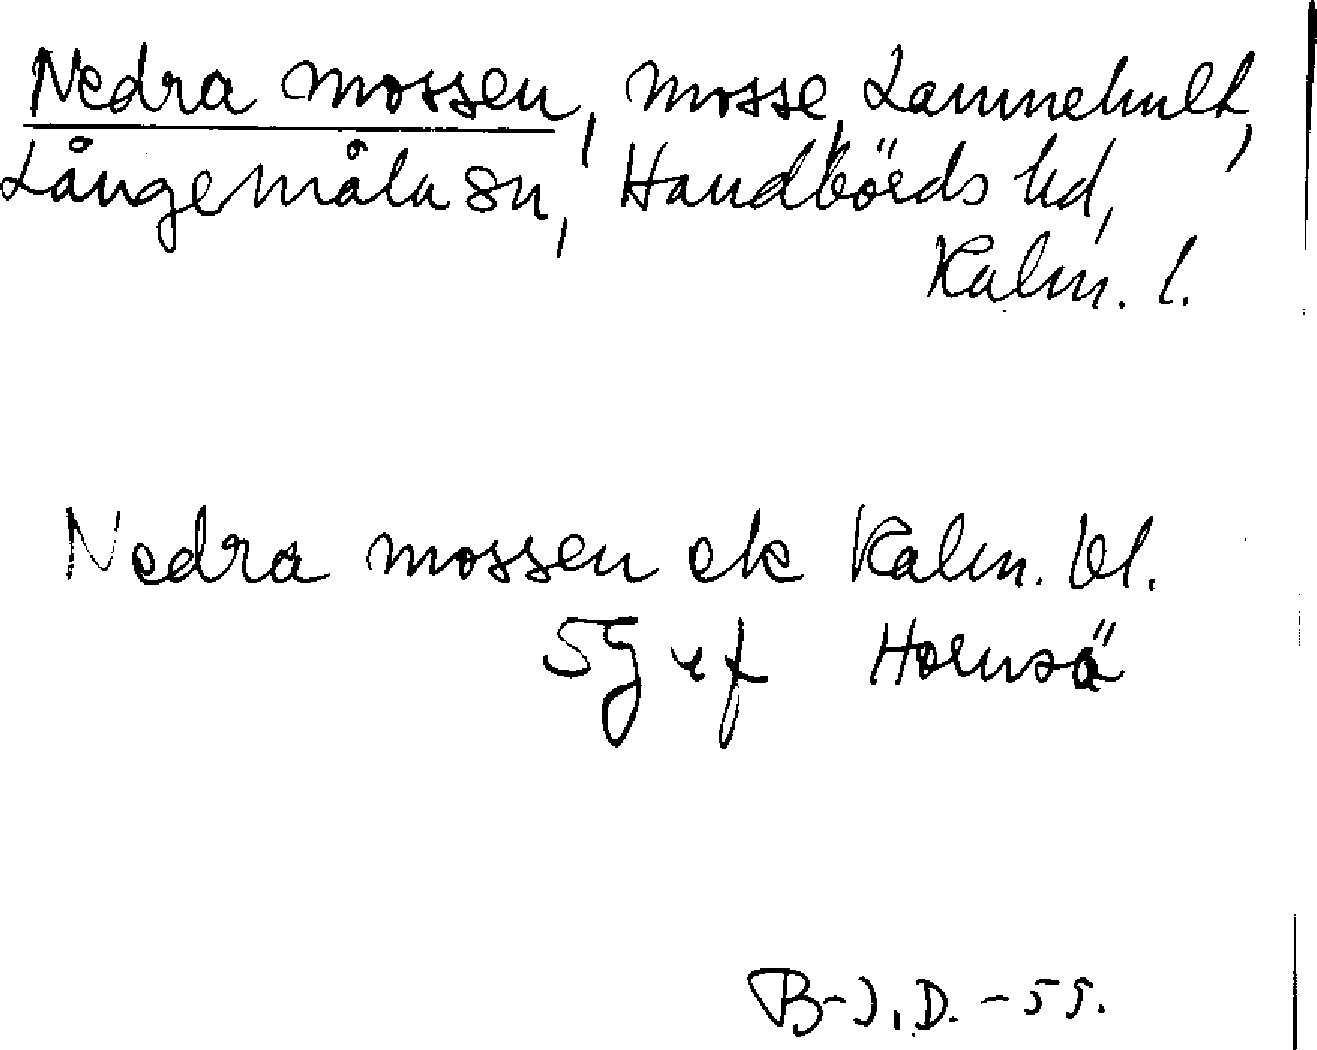 Nedra mossen, mosse, Lammehult,
Långemåla sn, Handbörds hd,
Kalm. l.
Nedra mossen ek Kalm. bl.
5g vf Hornsö
B-J. D. -55.